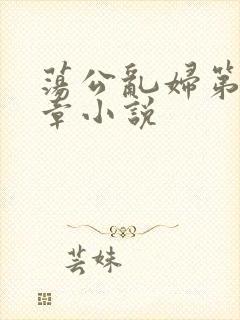 蕩公亂婦第
章小說
芸妹